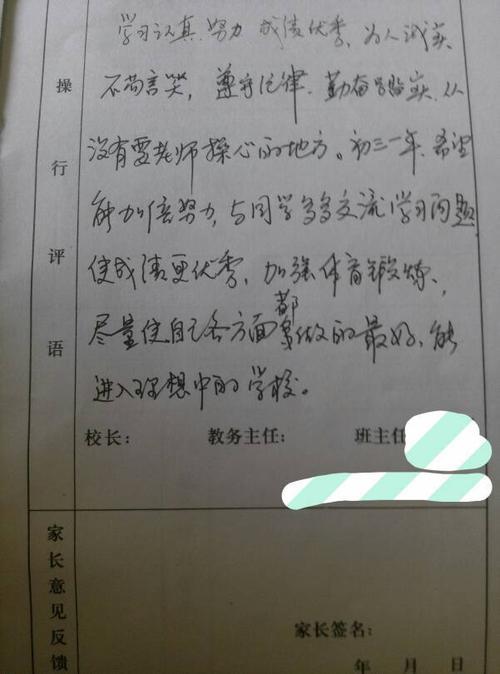 操行评语
学习认真努力,成绩优秀,为人诚实,
不苟言笑,遵守纪律,勤奋踏实,从
没有要老师操心的地方。初三一年,希望
能加倍努力,与同学多多交流学习问题,
使成绩更优秀,加强体育锻炼,
尽量使自己各方面都做的最好,能
进入理想中的学校。
校长: 教务主任: 班主任
家长意见反馈
家长签名:
年 月 日